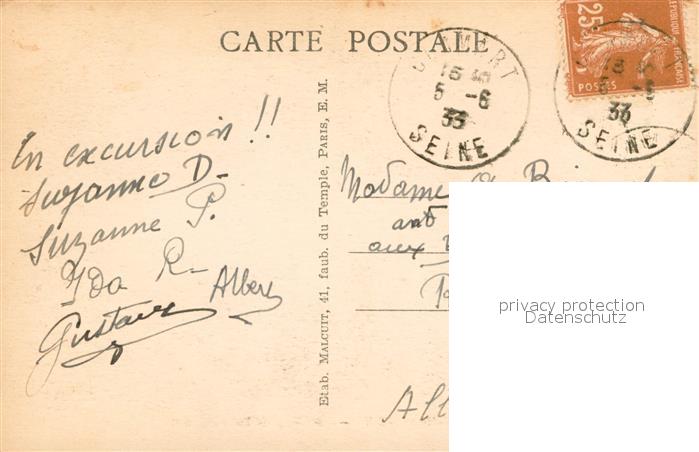 CARTE POSTALE
CLAMART
15
5 -6
33
SEINE
25c
REPUBLIQUE FRANÇAISE
POSTES
15
33
SEINE
En excursion !!
Suzanne D.
Suzanne P.
Ida R.
Albert
Gustave
Etab. MALCUIT, 41, faub. du Temple, PARIS, E. M.
Madame
aux
privacy protection
Datenschutz